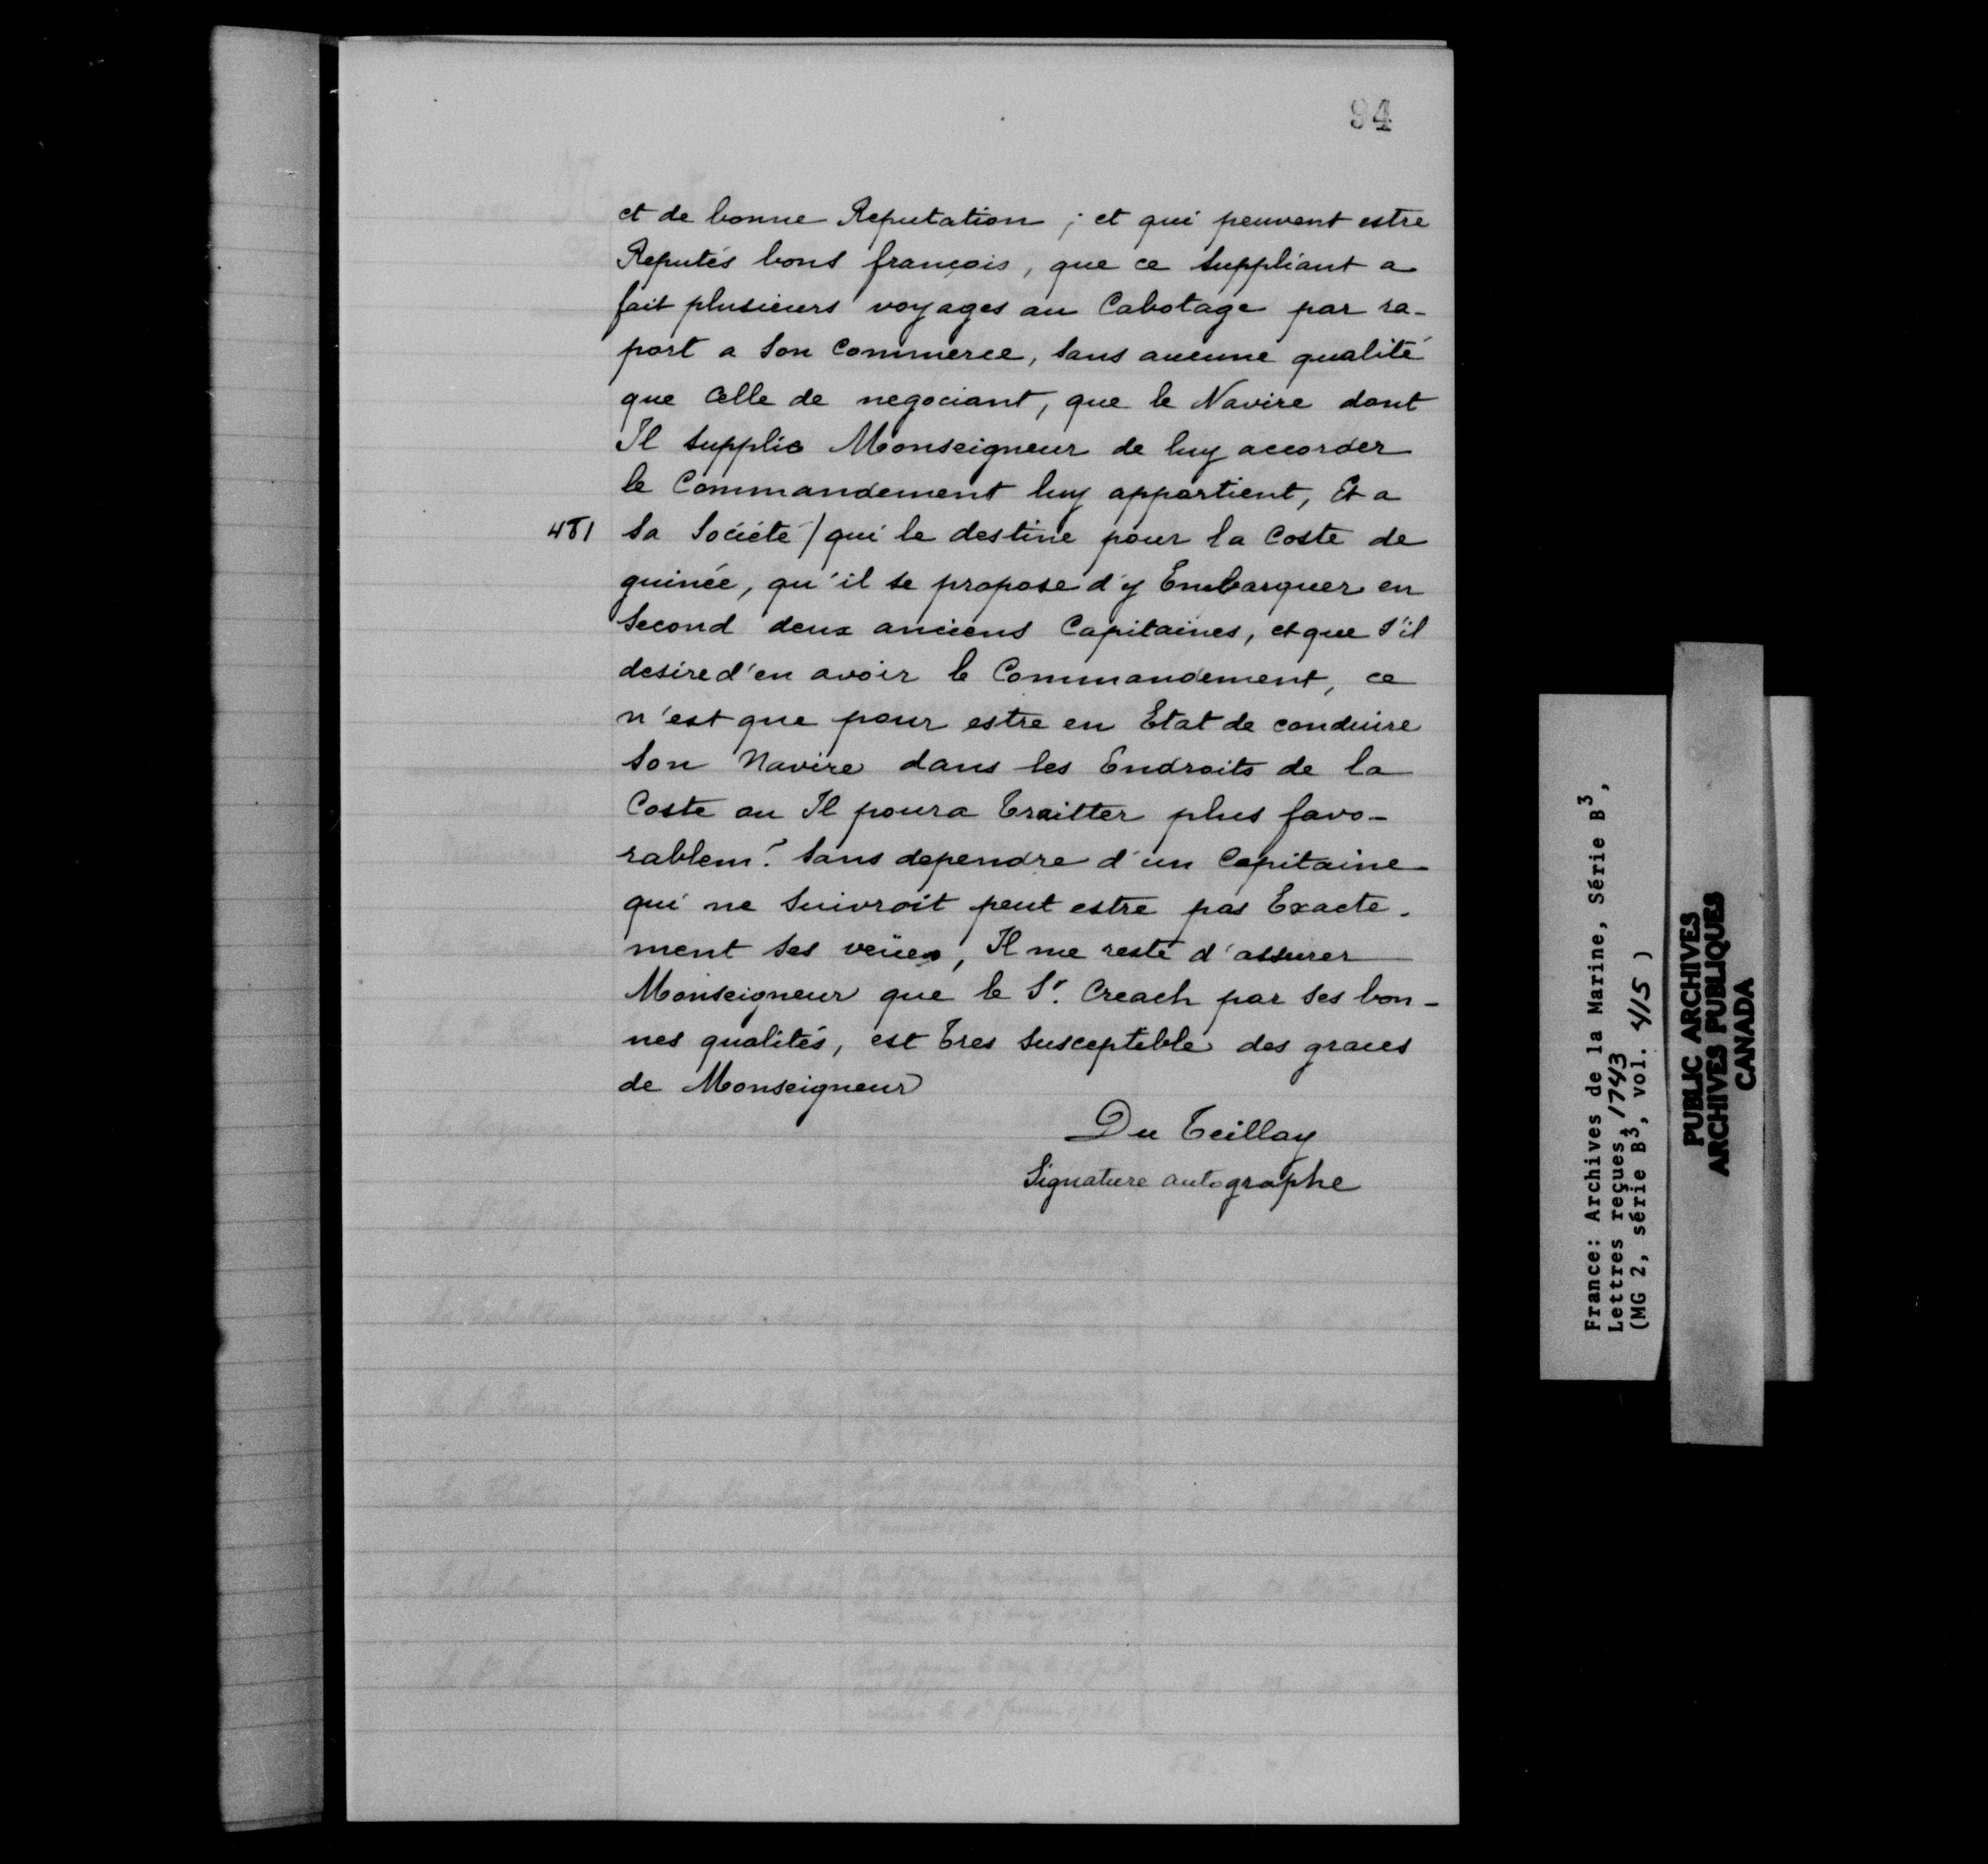 94
et de bonne Reputation ; et qui peuvent estre
Reputés bons françois, que ce suppliant a
fait plusieurs voyages au Cabotage par ra-
port a son Commerce, sans aucune qualité
que Celle de negociant, que le Navire dont
Il supplie Monseigneur de luy accorder
le Commandement luy appartient, Et a
481 sa Société / qui le destine pour la Coste de
guinée, qu'il se propose d'y Embarquer en
second deux anciens Capitaines, et que s'il
desire d'en avoir le Commandement, ce
n'est que pour estre en Etat de conduire
son Navire dans les Endroits de la
Coste ou Il poura traitter plus favo-
rablemt. sans dependre d'un Capitaine
qui ne suivroit peut estre pas Exacte-
ment ses veües, Il me reste d'assurer
Monseigneur que le Sr. Creach par ses bon-
nes qualités, est tres susceptible des graces
de Monseigneur
Du Teillay
Signature autographe
France: Archives de la Marine, Série B3,
Lettres reçues, 1743
(MG 2, série B3, vol. 415 )
PUBLIC ARCHIVES
ARCHIVES PUBLIQUES
CANADA